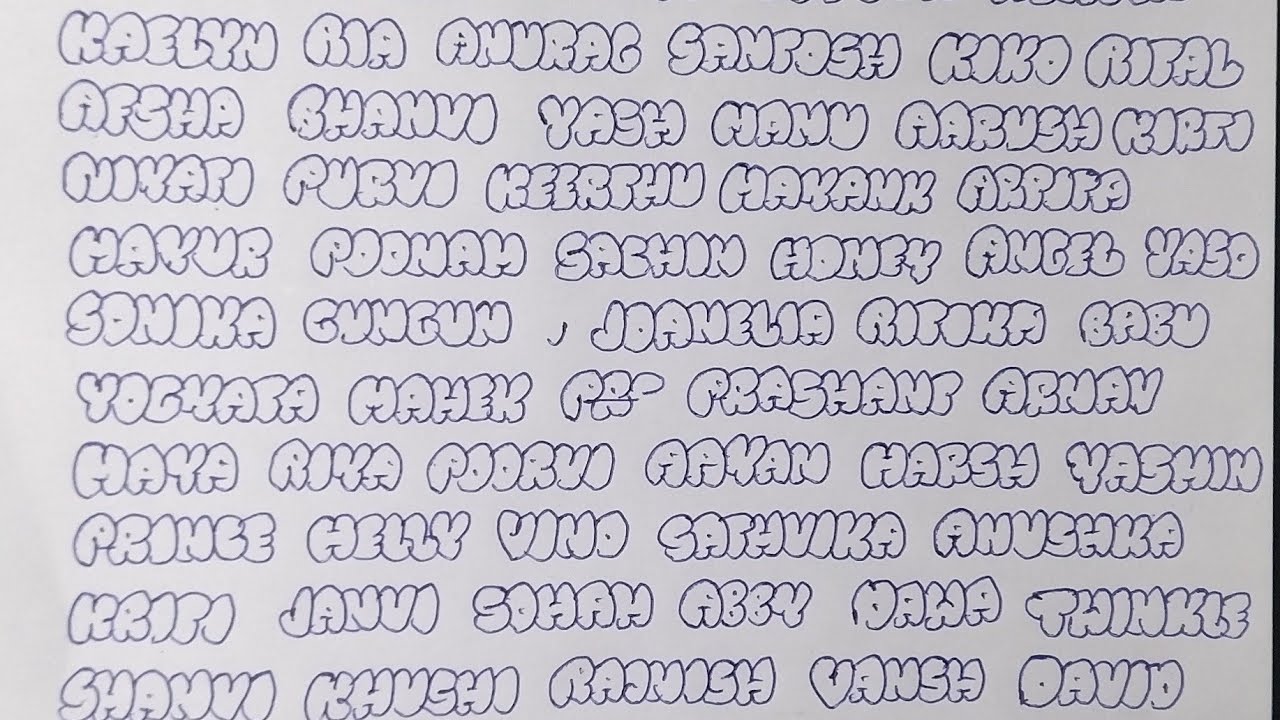 KAELYN RIA ANURAG SANTOSH KIKO RITAL
AFSHA BHANVI YASH MANU AARUSH KIRTI
NIYATI PURVI KEERTHU MAYANK ARPITA
MAYUR POONAM SACHIN HONEY ANGEL YASO
SONIKA GUNGUN , JOANELIA RITIKA BABU
YOGYATA MAHEK PRASHANT ARNAV
MAYA RIYA POORVI AAYAN HARSH YASHIN
PRINCE HELLY VINO SATHVIKA ANUSHKA
KRITI JANVI SOHAM ABBY DAWA TWINKLE
SHANVI KHUSHI RAJNISH VANSH DAVID